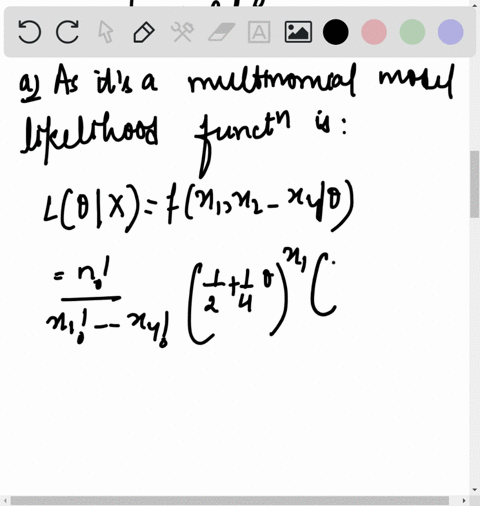 a) As it's a multinomial model
likelihood functⁿ is:
L(θ|X) = f(x₁,x₂ - x₄|θ)
= n! / x₁! -- x₄! (1/2 + 1/4 θ)^x₁ (